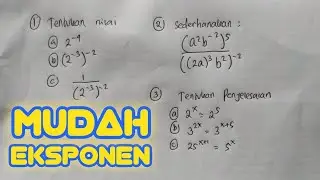 ① Tentukan nilai
ⓐ 2⁻⁴
ⓑ (2⁻³)⁻²
ⓒ 1/(2⁻³)⁻²
② Sederhanakan :
(a²b⁻²)⁵/((2a)³b²)⁻²
③ Tentukan Penyelesaian
ⓐ 2ˣ = 2⁵
ⓑ 3²ˣ = 3ˣ⁺⁵
ⓒ 25ˣ⁺¹ = 5ˣ
MUDAH
EKSPONEN